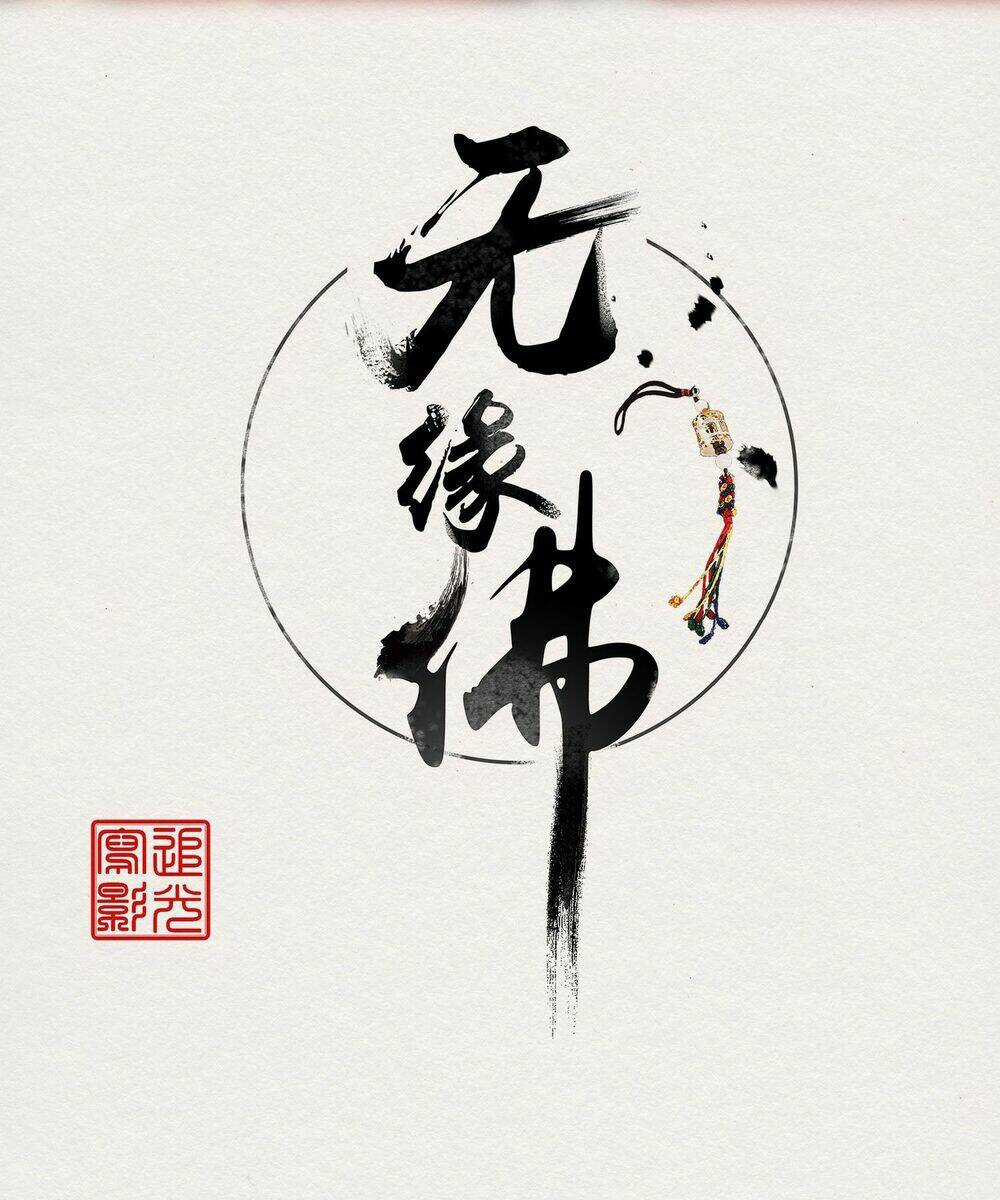 无缘佛
追光
寫影